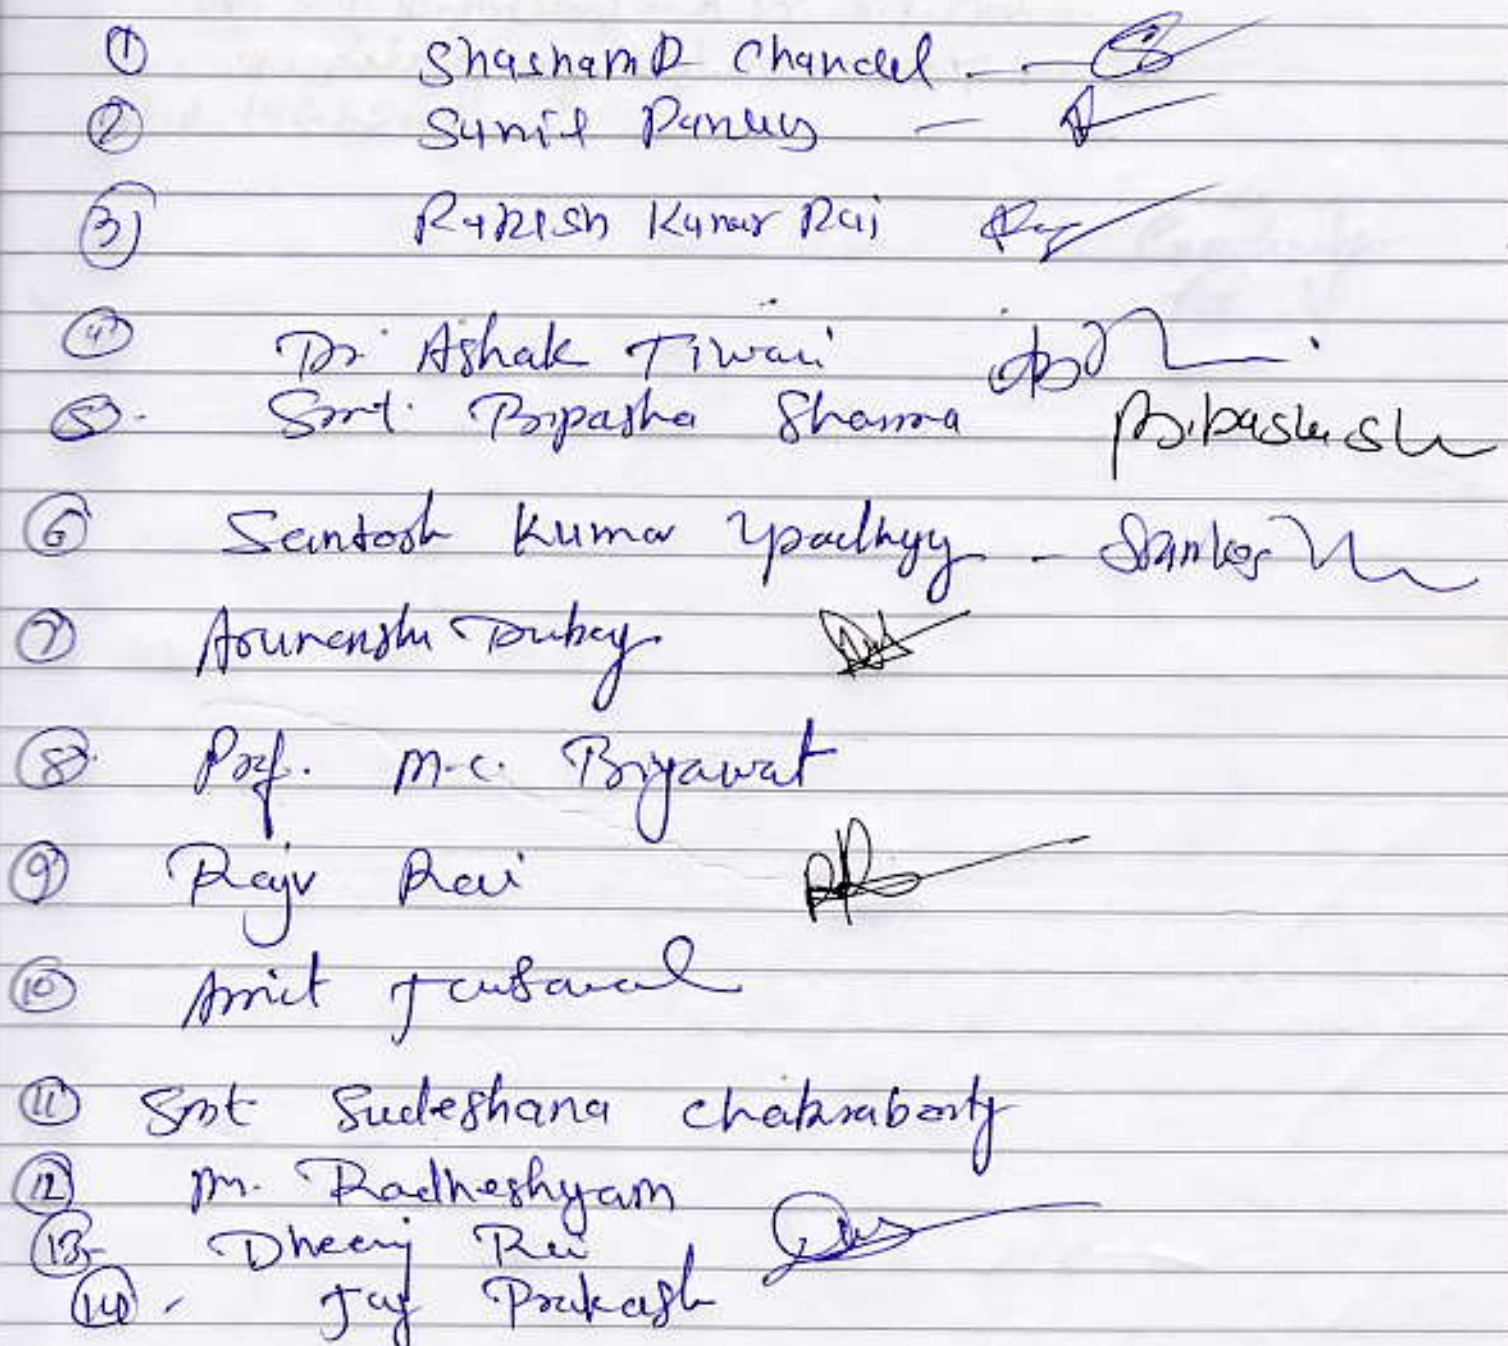 ① Shashank Chandel - -
② Sunil Pandey -
③ Rakesh Kumar Rai
④ Dr Ashok Tiwari
⑤ - Smt. Bipasha Sharma Bibasha Sh
⑥ Santosh Kumar Upadhyay - Santosh
⑦ Arunanshu Dubey
⑧ Prof. M.C. Biyawat
⑨ Rajv Rai
⑩ Amit Jaiswal
⑪ Smt Sudeshana Chakraborty
⑫ M. Radheshyam
⑬ - Dheeraj Rai
⑭ - Jay Prakash